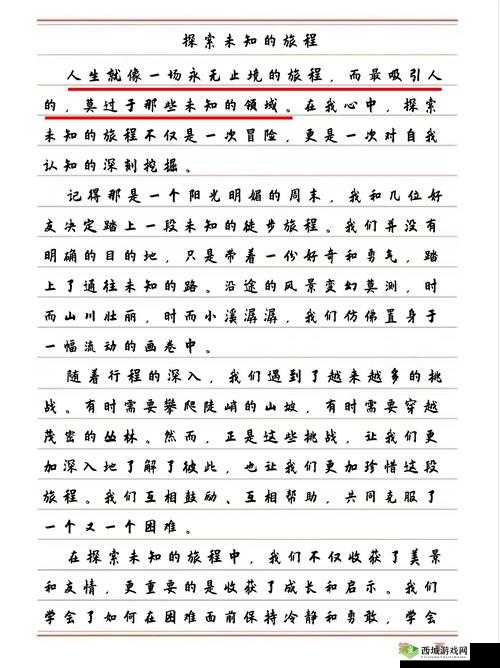 探索未知的旅程
人生就像一场永无止境的旅程，而最吸引人
的，莫过于那些未知的领域。在我心中，探索
未知的旅程不仅是一次冒险，更是一次对自我
认知的深刻挖掘。
记得那是一个阳光明媚的周末，我和几位好
友决定踏上一段未知的徒步旅程。我们并没有
明确的目的地，只是带着一份好奇和勇气，踏
上了通往未知的路。沿途的风景变幻莫测，时
而山川壮丽，时而小溪潺潺，我们仿佛置身于
一幅流动的画卷中。
随着行程的深入，我们遇到了越来越多的挑
战。有时需要攀爬陡峭的山坡，有时需要穿越
茂密的丛林。然而，正是这些挑战，让我们更
加深入地了解了彼此，也让我们更加珍惜这段
旅程。我们互相鼓励、互相帮助，共同克服了
一个又一个困难。
在探索未知的旅程中，我们不仅收获了美景
和友情，更重要的是收获了成长和启示。我们
学会了如何在困难面前保持冷静和勇敢，学会
西城游戏网